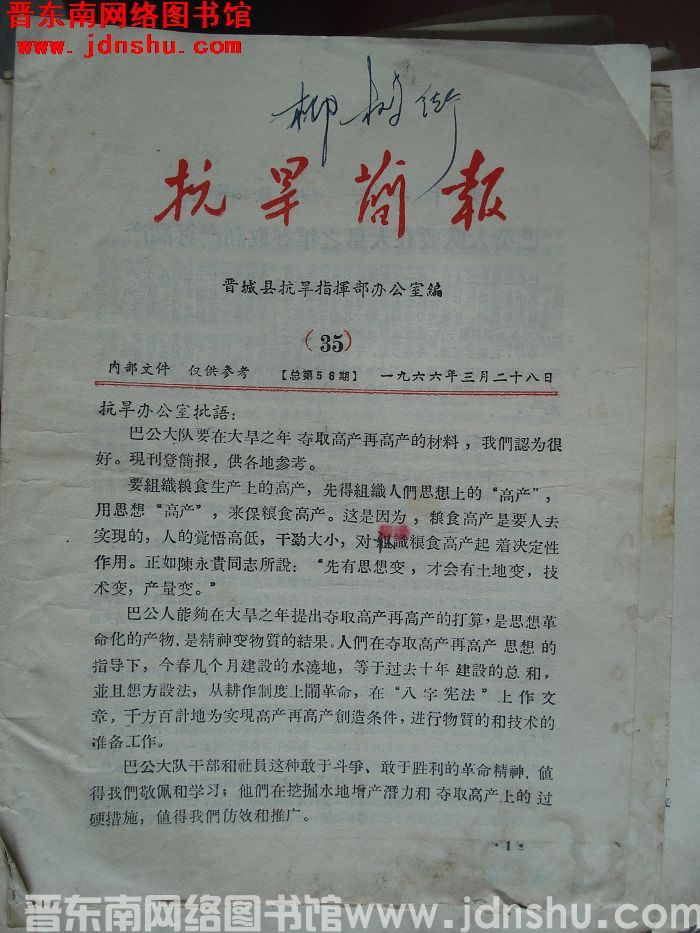 晋东南网络图书馆
www.jdnshu.com
柳树街
抗旱簡報
晋城县抗旱指揮部办公室編
(35)
内部文件 仅供参考 【总第56期】 一九六六年三月二十八日
抗旱办公室批語：
巴公大队要在大旱之年夺取高产再高产的材料，我們認为很
好。現刊登簡报，供各地参考。
要組織粮食生产上的高产，先得組織人們思想上的“高产”，
用思想“高产”，来保粮食高产。这是因为，粮食高产是要人去
实現的，人的覚悟高低，干劲大小，对組織粮食高产起着决定性
作用。正如陳永貴同志所說：“先有思想变，才会有土地变，技
术变，产量变。”
巴公人能夠在大旱之年提出夺取高产再高产的打算，是思想革
命化的产物，是精神变物質的結果。人們在夺取高产再高产思想的
指导下，今春几个月建設的水澆地，等于过去十年建設的总和，
並且想方設法，从耕作制度上鬧革命，在“八字宪法”上作文
章，千方百計地为实現高产再高产創造条件，进行物質的和技术的
准备工作。
巴公大队干部和社員这种敢于斗爭、敢于胜利的革命精神，値
得我們敬佩和学习；他們在挖掘水地增产潛力和夺取高产上的过
硬措施，値得我們仿效和推广。
·1·
晋东南网络图书馆www.jdnshu.com